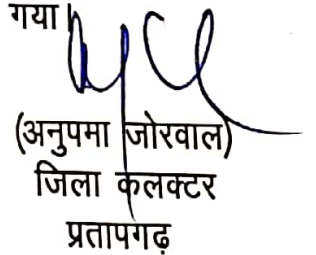 गया।
(अनुपमा जोरवाल)
जिला कलक्टर
प्रतापगढ़